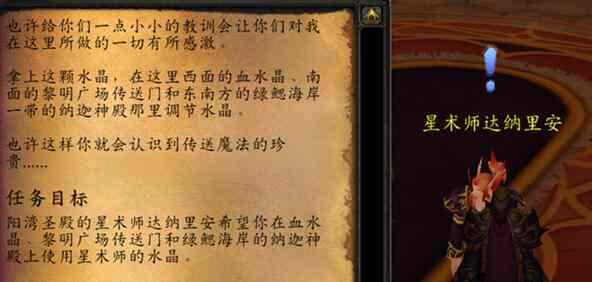 也许给你们一点小小的教训会让你们对我
在这里所做的一切有所感激。
拿上这颗水晶，在这里西面的血水晶、南
面的黎明广场传送门和东南方的绿鳃海岸
一带的纳迦神殿那里调节水晶。
也许这样你就会认识到传送魔法的珍
贵……
任务目标
阳湾圣殿的星术师达纳里安希望你在血水
晶、黎明广场传送门和绿鳃海岸的纳迦神
殿上使用星术师的水晶。
星术师达纳里安